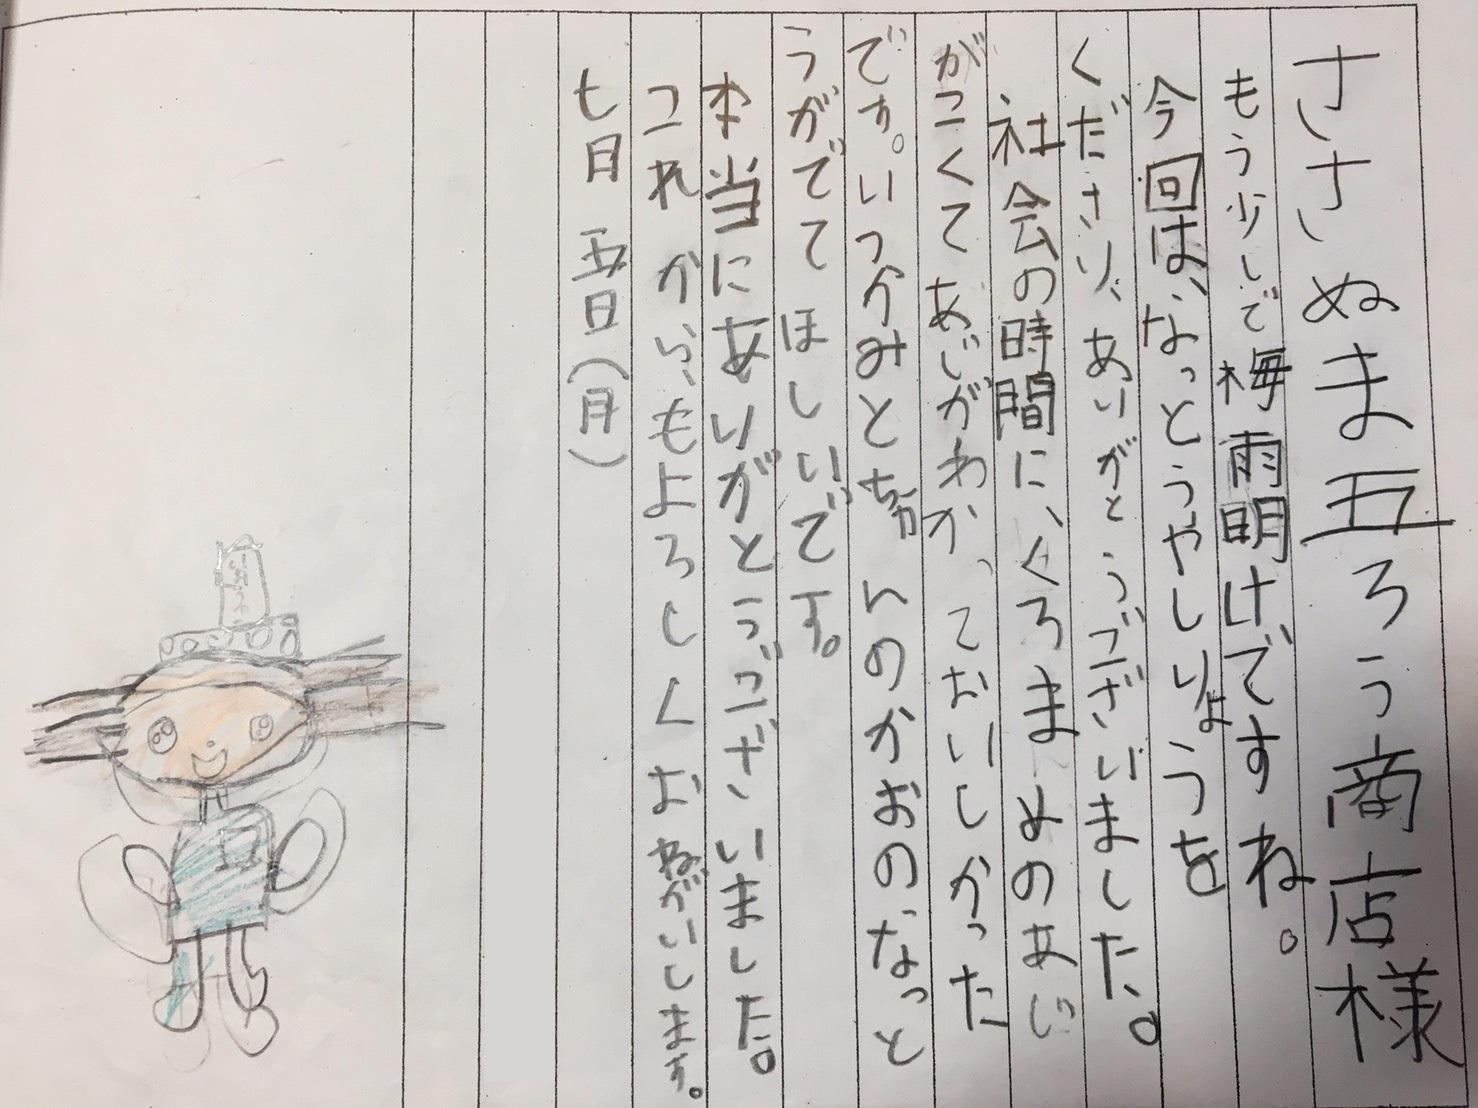 ささぬま五ろう商店様
もう少しで梅雨明けですね。
今回は、なっとうやしりょうを
くださり、ありがとうございました。
社会の時間に、くろまめのあじ
がこくてあじがわかっておいしかった
です。いつかみとちゃんのかおのなっと
うがでてほしいです。
本当にありがとうございました。
これからもよろしくおねがいします。
七月五日(月)